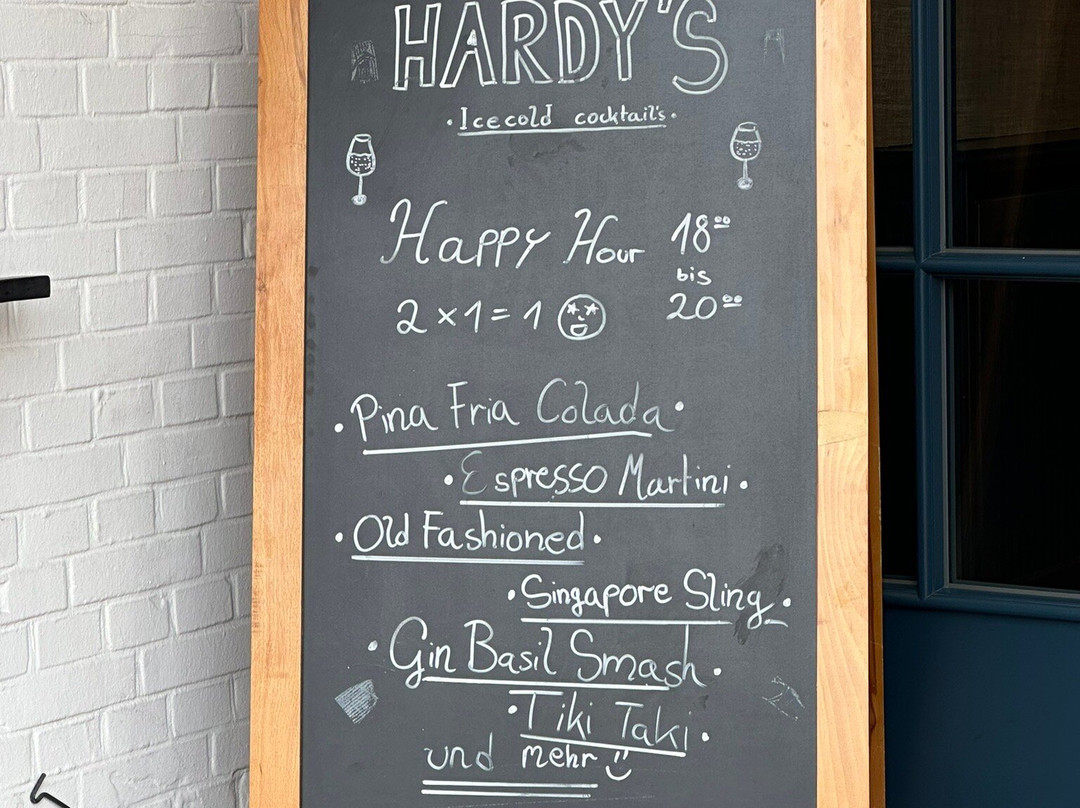 HARDY'S
· Icecold cocktail's ·
Happy Hour 18⁰⁰
bis
2 x 1 = 1 20⁰⁰
· Pina Fria Colada ·
· Espresso Martini ·
· Old Fashioned ·
· Singapore Sling ·
· Gin Basil Smash ·
· Tiki Taki ·
und mehr